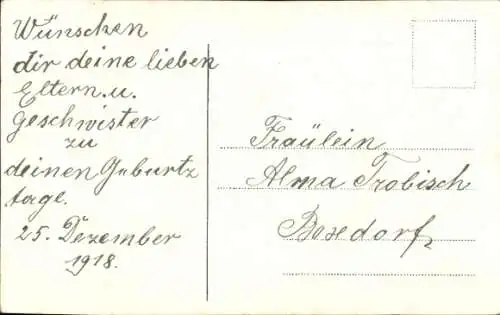 Wünschen
dir deine lieben
Eltern. u.
Geschwister
zu
deinen Geburtz
tage.
25. Dezember
1918.
Fräulein
Alma Trobisch
Boxdorf,